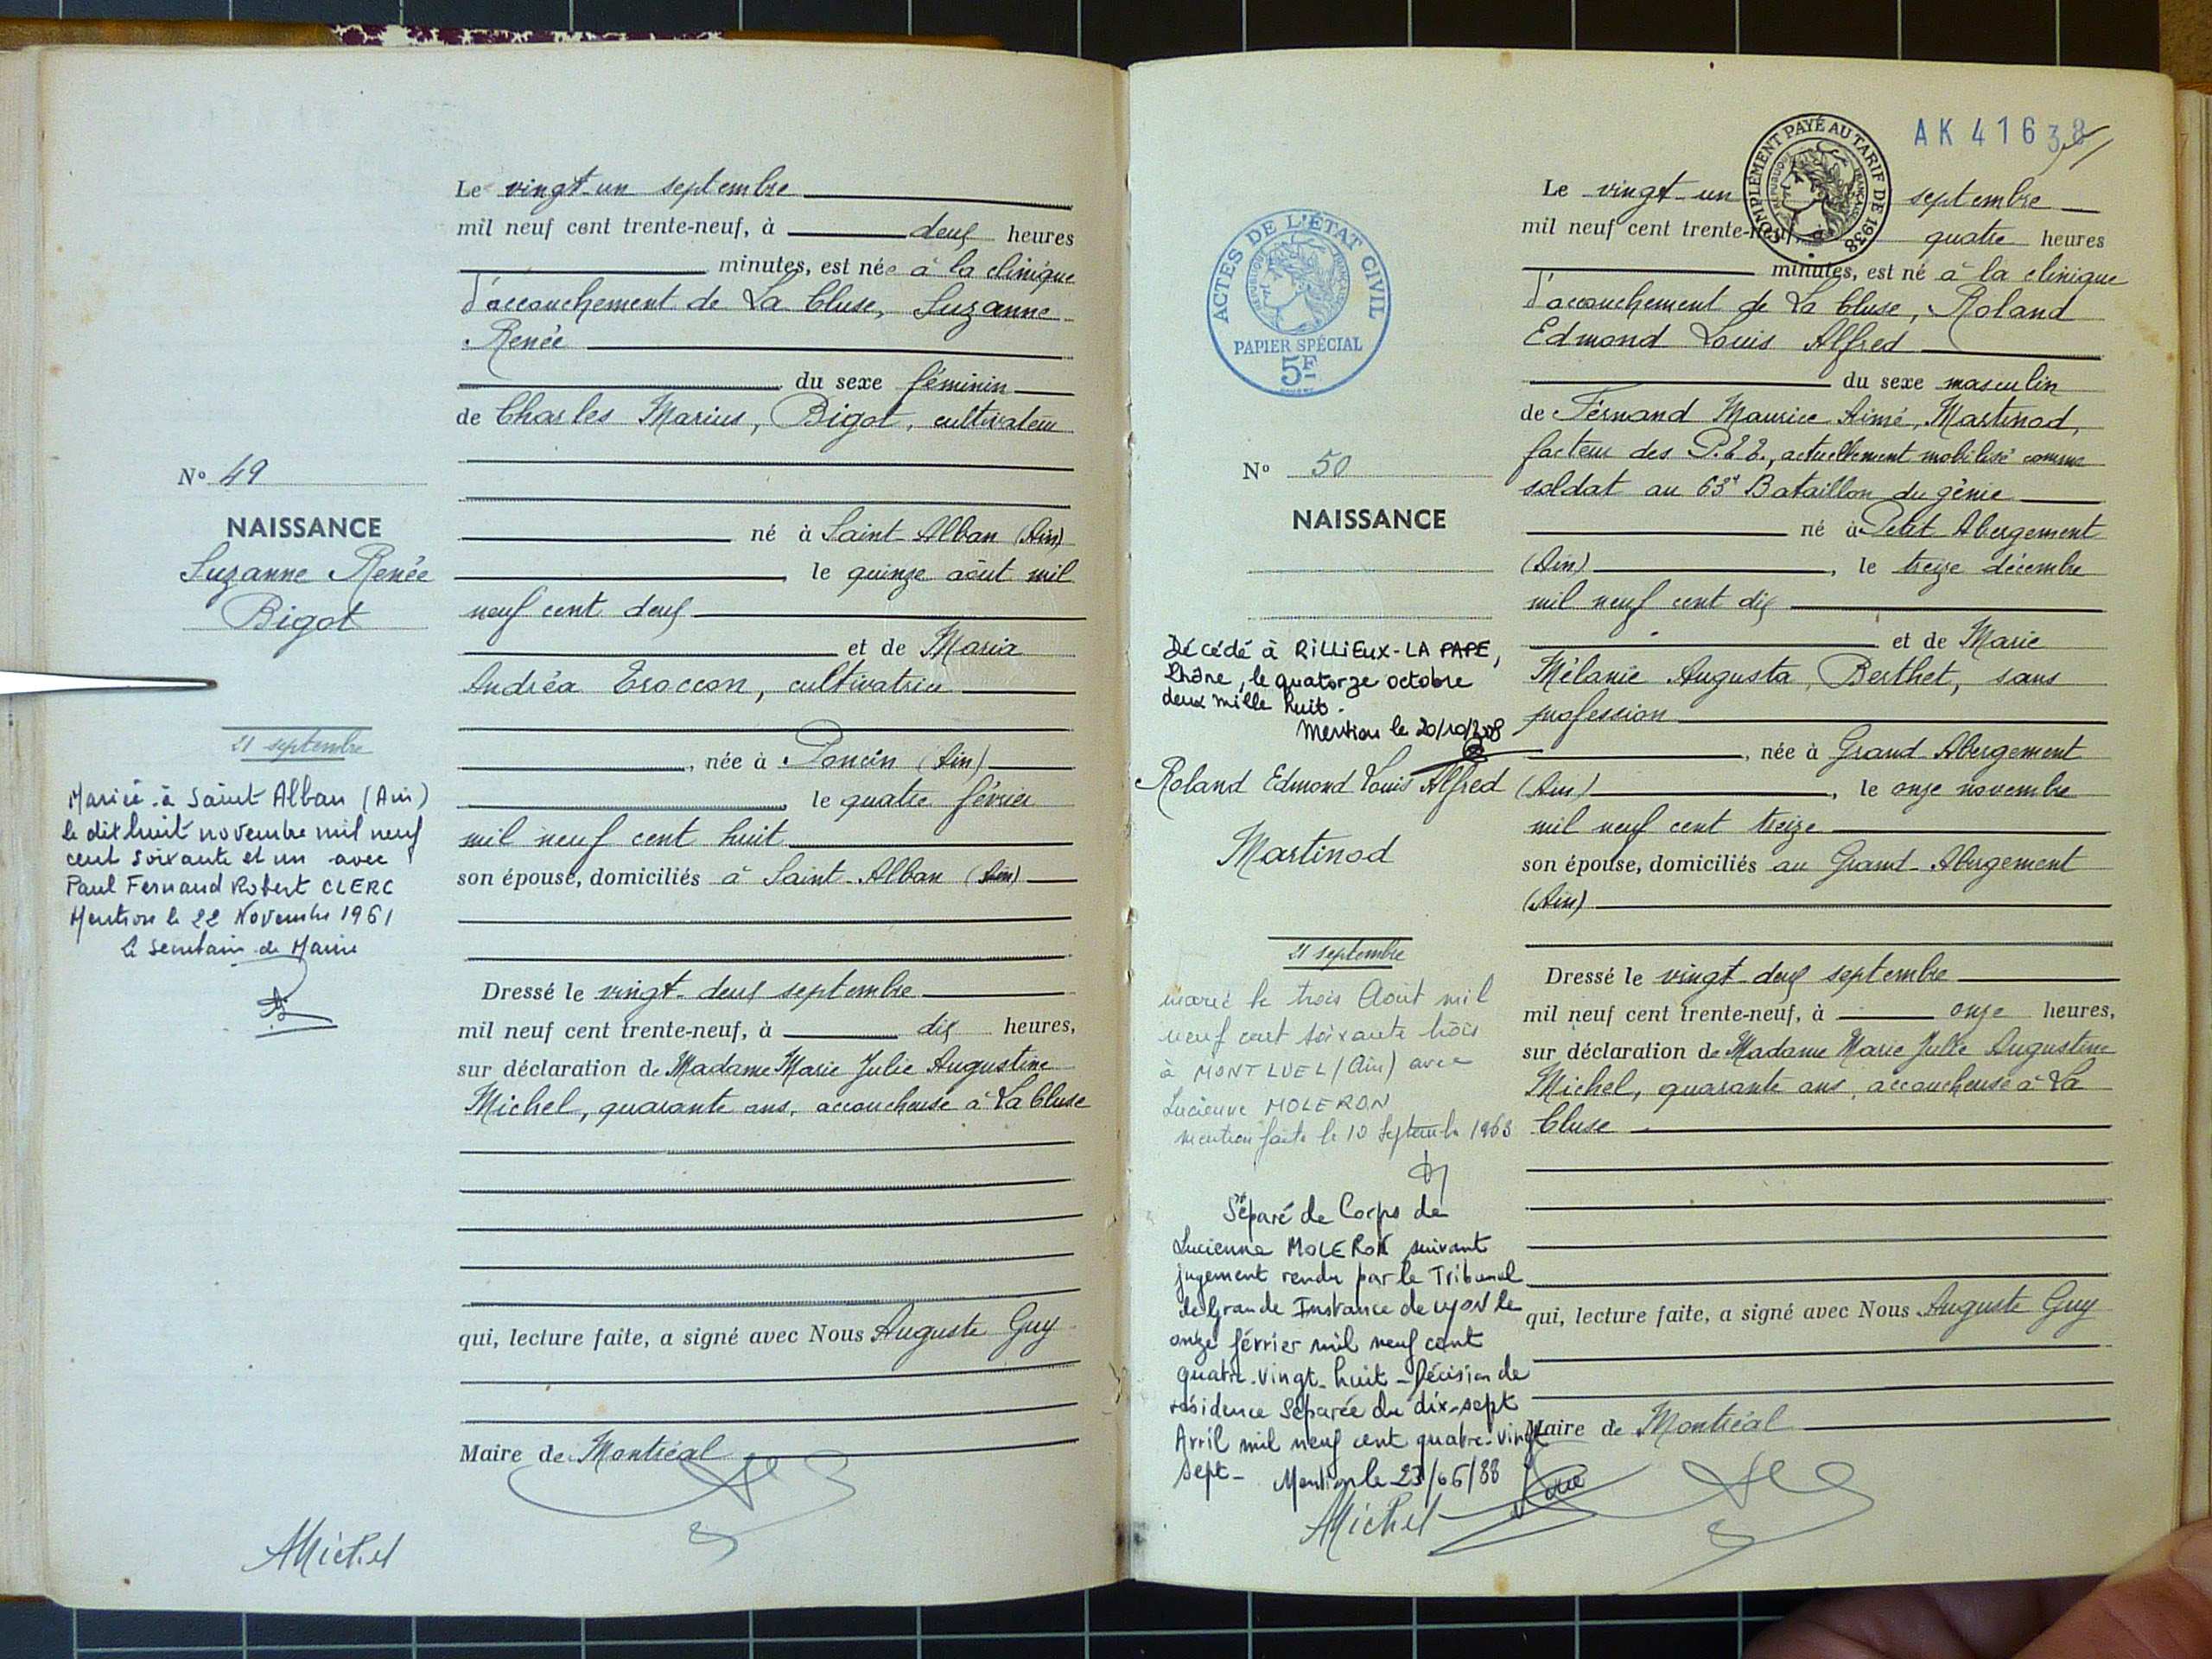 Le vingt-un septembre
mil neuf cent trente-neuf, à deux heures
minutes, est née à la clinique
d'accouchement de La Cluse, Suzanne
Renée
du sexe féminin
de Charles Marius, Bigot, cultivateur
né à Saint-Alban (Ain)
le quinze août mil
neuf cent deux
et de Maria
Andréa Eroccon, cultivatrice
, née à Poncin (Ain)
le quatre février
mil neuf cent huit
son épouse, domiciliés à Saint-Alban (Ain)
Dressé le vingt-deux septembre
mil neuf cent trente-neuf, à dix heures,
sur déclaration de Madame Marie Julie Augustine
Michel, quarante ans, accoucheuse à La Cluse
qui, lecture faite, a signé avec Nous Auguste Guy
Maire de Montréal
N° 49
NAISSANCE
Suzanne Renée
Bigot
21 septembre
Mariée à Saint Alban (Ain)
le dix huit novembre mil neuf
cent soixante et un avec
Paul Fernand Robert CLERC
Mention le 22 Novembre 1961
Le Secrétaire de Mairie
AMichel
AK 41638
COMPLÉMENT PAYÉ AU TARIF DE 1938
RÉPUBLIQUE FRANÇAISE
Le vingt-un septembre
mil neuf cent trente-neuf, à quatre heures
minutes, est né à la clinique
d'accouchement de La Cluse, Roland
Edmond Louis Alfred
du sexe masculin
de Fernand Maurice Aimé, Martinod,
facteur des P.T.T., actuellement mobilisé comme
soldat au 63e Bataillon du génie
né à Petit Abergement
(Ain), le treize décembre
mil neuf cent dix
et de Marie
Mélanie Augusta, Berthet, sans
profession
, née à Grand-Abergement
(Ain), le onze novembre
mil neuf cent treize
son épouse, domiciliés au Grand-Abergement
(Ain)
Dressé le vingt-deux septembre
mil neuf cent trente-neuf, à onze heures,
sur déclaration de Madame Marie Julie Augustine
Michel, quarante ans, accoucheuse à La
Cluse
qui, lecture faite, a signé avec Nous Auguste Guy
Maire de Montréal
ACTES DE L'ÉTAT CIVIL
RÉPUBLIQUE FRANÇAISE
PAPIER SPÉCIAL
5F
N° 50
NAISSANCE
Décédé à RILLIEUX-LA PAPE,
Rhône, le quatorze octobre
deux mille huit.
Mention le 20/10/2008
Roland Edmond Louis Alfred
Martinod
21 septembre
marié le trois Août mil
neuf cent soixante trois
à MONTLUEL (Ain) avec
Lucienne MOLERON
mention faite le 10 Septembre 1963
Séparé de Corps de
Lucienne MOLERON suivant
jugement rendu par le Tribunal
de Grande Instance de LYON le
onze février mil neuf cent
quatre-vingt-huit - Décision de
résidence Séparée du dix-sept
Avril mil neuf cent quatre-vingt
sept - Mention le 23/06/88
AMichel